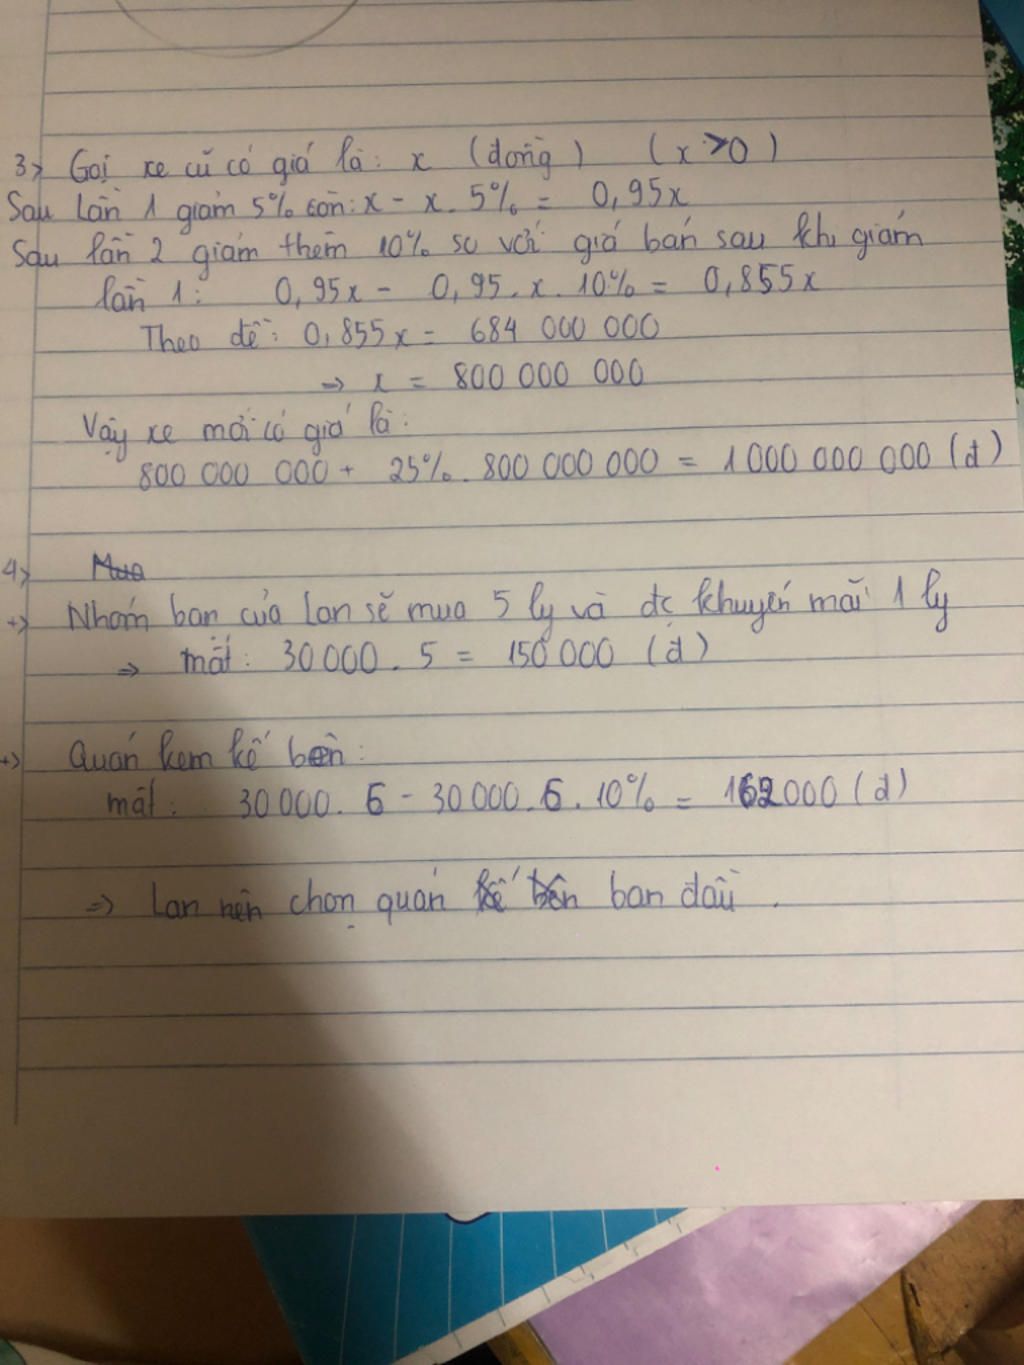 3> Gọi xe cũ có giá là: x (đồng) (x > 0)
Sau Lần 1 giảm 5% còn: x - x. 5% = 0,95x
Sau lần 2 giảm thêm 10% so với giá bán sau khi giảm
lần 1: 0,95x - 0,95.x.10% = 0,855x
Theo đề: 0,855x = 684 000 000
=> x = 800 000 000
Vậy xe mới có giá là:
800 000 000 + 25%. 800 000 000 = 1 000 000 000 (đ)
4> Mua
+> Nhóm bạn của Lan sẽ mua 5 ly và đc khuyến mãi 1 ly
=> mất: 30 000. 5 = 150 000 (đ)
+> Quán kem kế bên:
mất: 30 000. 6 - 30 000. 6. 10% = 162 000 (đ)
=> Lan nên chọn quán kế bên ban đầu.